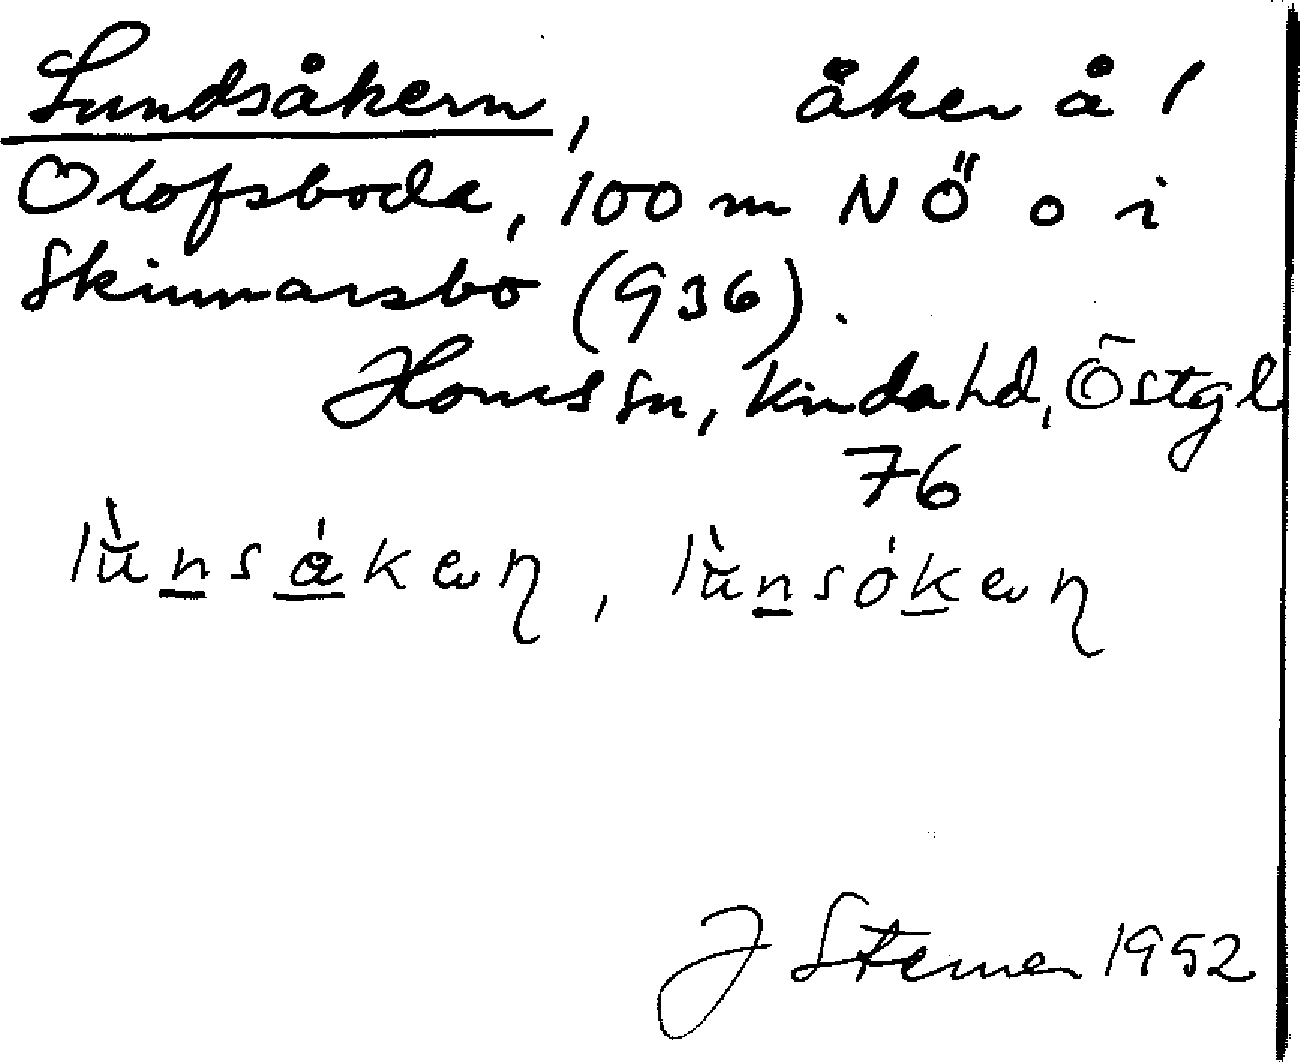 Lundsåkern, åker å 1
Olofsboda, 100 m NÖ o i
Skinnarsbo (936).
Horns sn, Kinda hd, Östgl
76
lùnsåkaɳ, lùnsókaɳ
J Sterner 1952